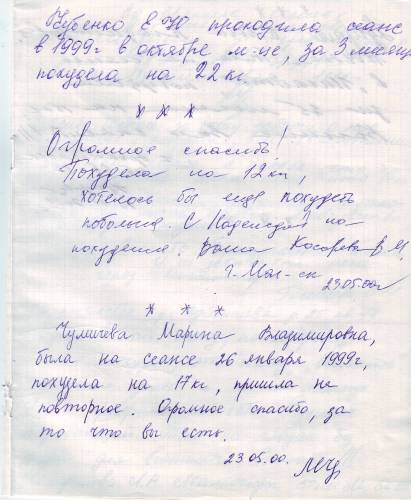 Кубенко Е Ю проходила сеанс
в 1999г в октябре м-це, за 3 месяца
похудела на 22 кг.
* * *
Огромное спасибо!
Похудела на 12 кг,
хотелось бы еще похудеть
побольше. С Надеждой на
похудение. Ваша Косарева В.М,
г.
23.05.00г
* * *
Чумичева Марина Владимировна,
была на сеансе 26 января 1999г,
похудела на 17кг, пришла на
повторное. Огромное спасибо, за
то что вы есть.
23.05.00.